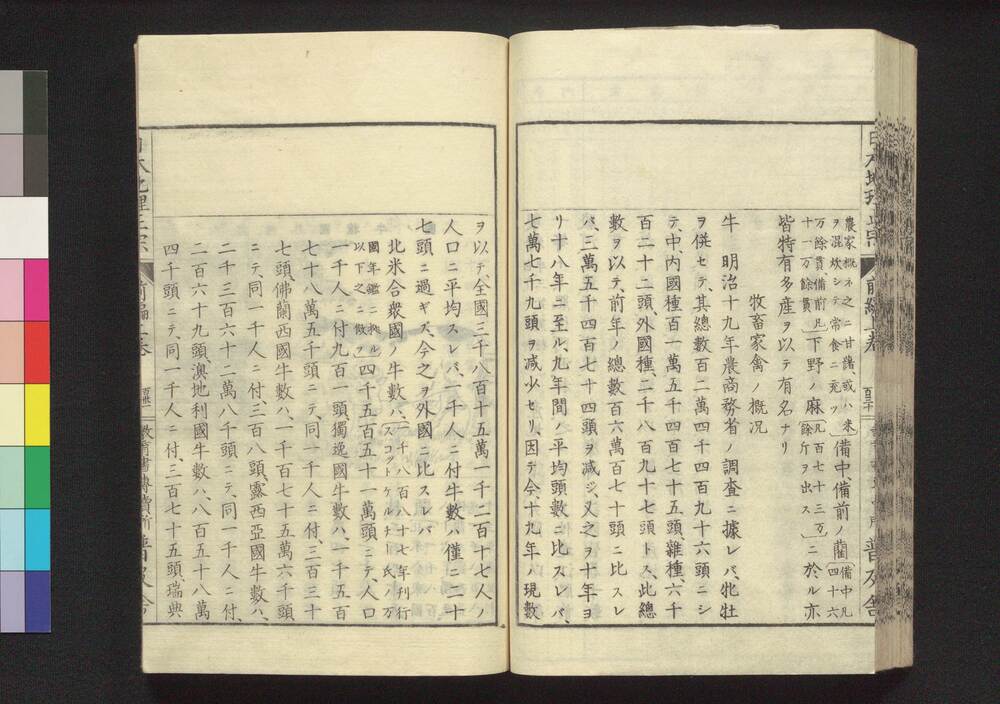 農家概ネ之ニ甘藷、或ハ米
ヲ混炊シテ常食ニ充ツ
備中、備前ノ藺
備中凡
四十六
万餘貫備前凡
十一万餘貫
下野ノ麻
凡百七十三万
餘斤ヲ出ス
ニ於ル亦
皆特有多産ヲ以テ有名ナリ
牧畜家禽ノ概況
牛 明治十九年農商務省ノ調査ニ據レバ、牝牡
ヲ併セテ、其總數百二萬四千四百九十六頭ニシ
テ、中、内國種百一萬五千四百七十五頭、雜種、六千
百二十二頭、外國種、二千八百九十七頭トス、此總
數ヲ以テ、前年ノ總數百六萬百七十頭ニ比スレ
バ、三萬五千四百七十四頭ヲ减ジ、又之ヲ十年ヨ
リ十八年ニ至ル、九年間ノ平均頭數ニ比スレバ、
七萬七千九頭ヲ减少セリ、因テ今、十九年ノ現數
ヲ以テ、全國三千八百十五萬一千二百十七人ノ
人口ニ平均スレバ、一千人ニ付牛數ハ僅ニ二十
七頭ニ過ギズ、今之ヲ外國ニ比スレバ
北米合衆國ノ牛數ハ、
一千八百八十七年刊行
スコットケルチー氏ノ万
國年鑑ニ拠ル
以下之ニ倣フ
四千五百五十一萬頭ニテ、人口
一千人ニ付九百一頭、獨逸國牛數ハ、一千五百
七十八萬五千頭ニテ、同一千人ニ付、三百三十
七頭、佛蘭西國牛數ハ、一千百七十五萬六千頭
ニテ、同一千人ニ付、三百八頭、露西亞國牛數ハ、
二千三百六十二萬八千頭ニテ、同一千人ニ付、
二百六十九頭、澳地利國牛數ハ、八百五十八萬
四千頭ニテ、同一千人ニ付、三百七十五頭、瑞典